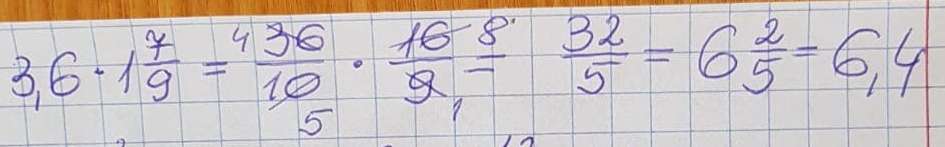 3,6 · 1 7/9 = 4 36/10 5 · 16 8/9 1 = 32/5 = 6 2/5 = 6,4